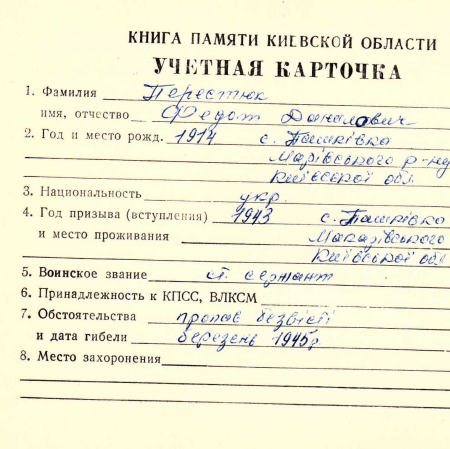 КНИГА ПАМЯТИ КИЕВСКОЙ ОБЛАСТИ
УЧЕТНАЯ КАРТОЧКА
1. Фамилия Перестюк
имя, отчество Федот Данилович
2. Год и место рожд. 1914 с. Пашківка
Марівського р-ну
Київської обл.
3. Национальность укр.
4. Год призыва (вступления) 1943 с. Пашківка
и место проживания Макарівського
Київської обл
5. Воинское звание ст. сержант
6. Принадлежность к КПСС, ВЛКСМ
7. Обстоятельства пропав безвісті
и дата гибели березень 1945р
8. Место захоронения